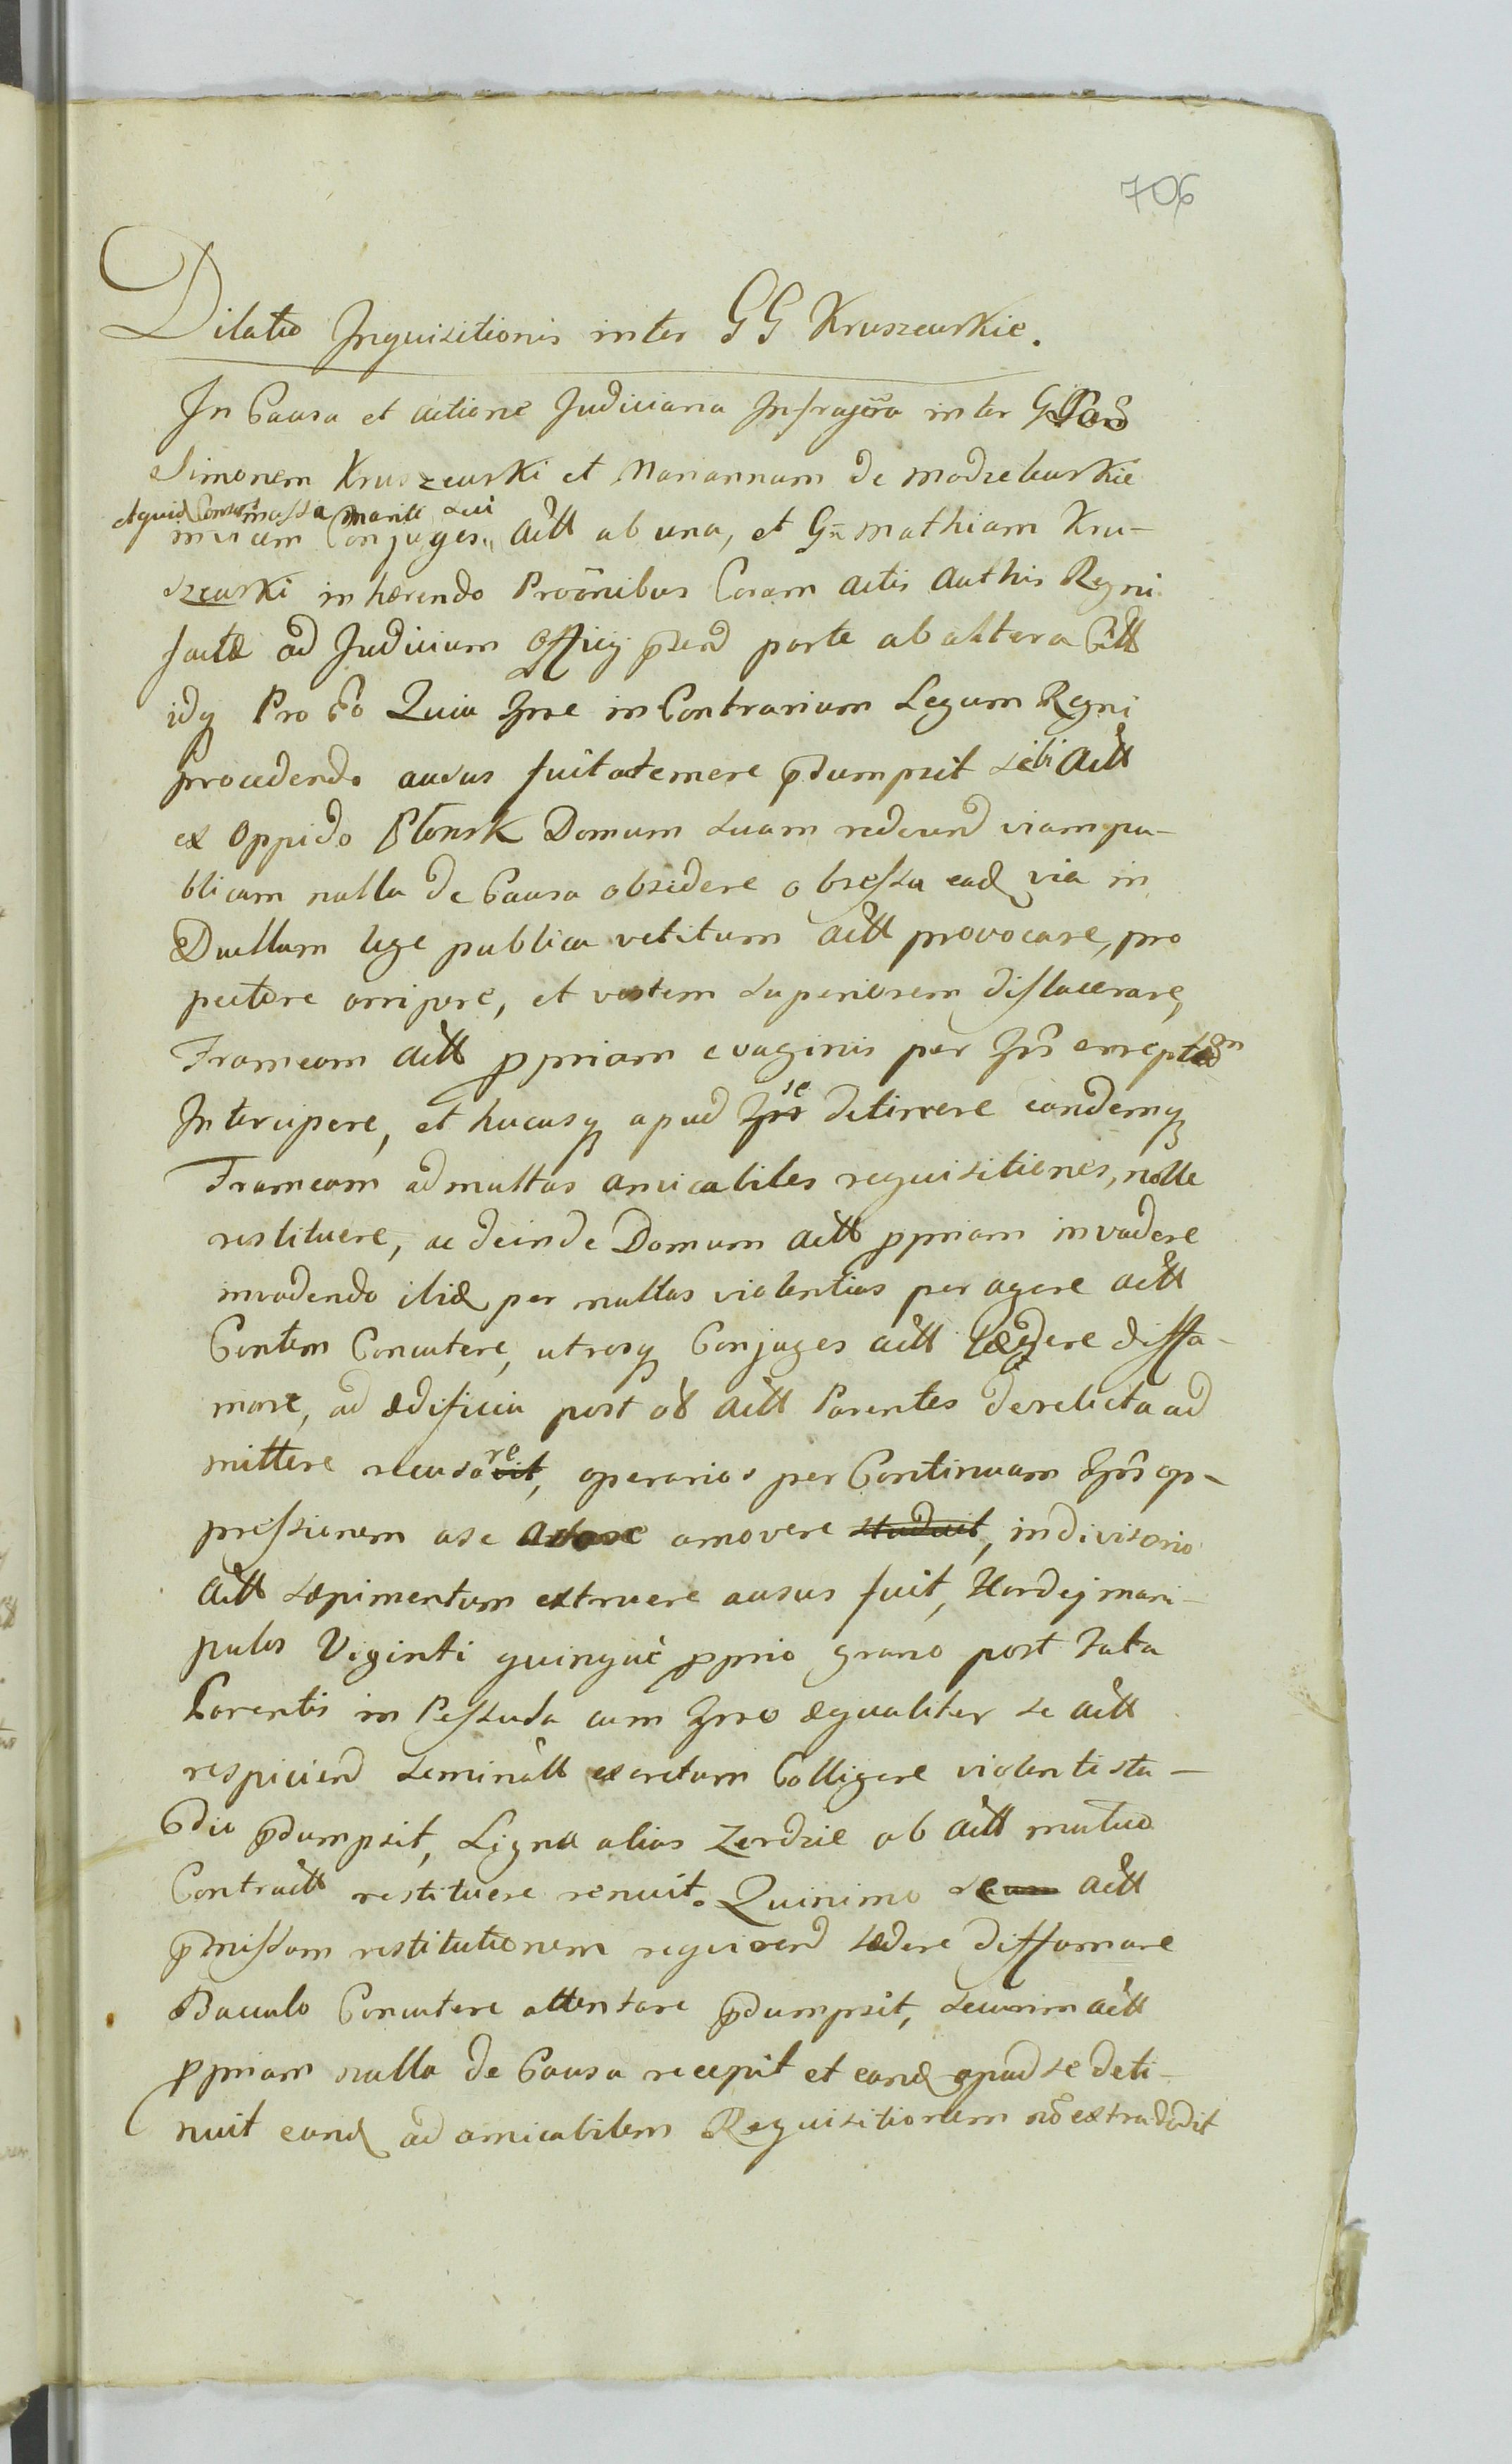 706
Dilatio Inquisitionis inter GG Kruszewskie.
In Causa et actione Judiciaria Infrascra inter
Simonem Kruszewski et Mariannam de Modzelewskie
mariti sui
invicem Conjuges Actt ab una, et G Mathiam Kru-
szewski inhærendo Proõnibus Coram Actis Authis Regni
factæ ad Judicium Officij p̃send parte ab altera Citt
idq Pro Eo Quia Ipse in Contrarium Legum Regni
procedendo ausus fuit ac temere p̃sumpsit sibi Actt
ex Oppido Płonsk Domum suam redeund viam pu-
blicam nulla de Causa obsidere obsessa eadq via in
Duellum lege publica vetitum Actt provocare, pro
pectore arripere, et vestem superiorem dislacerare,
Frameam Actt ppriam e vaginis per Ips erreptam
Intercipere, et hucusq apud se detinere eandemq
Frameam ad multas amicabiles requisitiones, nolle
restituere, ac deinde Domum Actt ppriam invadere
invadendo ibid per multas violentias peragere Actt
Contem Concutere, utrosq Conjuges Actt lædere diffa-
mare, ad ædificia post ob Actt Parentes derelicta ad
mittere recusare, operarios per Continuam Ips op-
pressionem a se amovere studuit, in divisorio
Actt sæpimentum extruere ausus fuit, Hordej mani-
pulos Viginti quinque pprio grano post fata
Parentis in Pessuda cum Ipso æqualiter se Actt
respiciend seminatt excretum Colligere violenti stu-
dio p̃sumpsit, Ligna alias Zerdzie ab Actt mutuo
Contractt restituere renuit. Quinimo Actt
p̃missam restitutionem requirend lædere diffamare
Baculo Concutere attentare p̃sumpsit, securim Actt
ppriam nulla de Causa recepit et eandq apud se deti-
nuit eandq ad amicabilem Requisitionem nõ extradidit